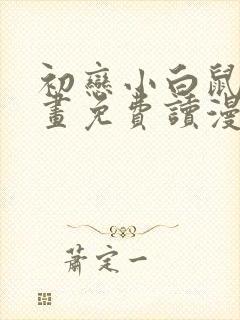 初戀小白鼠
畫免費讀漫
蕭定一